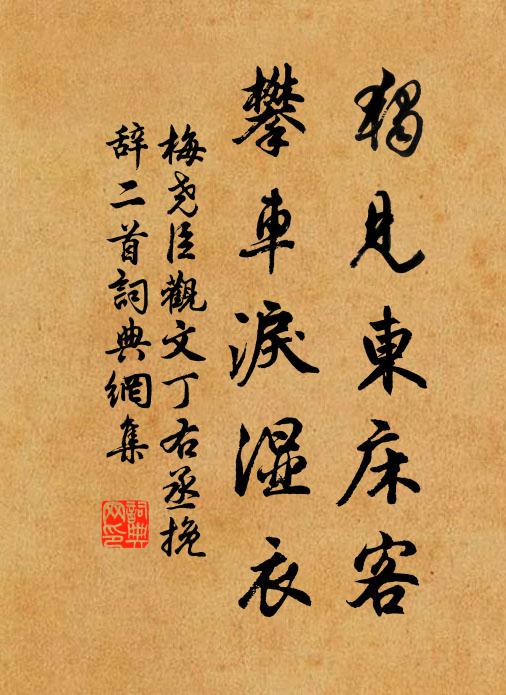 獨見東床客
攀車淚濕衣
梅尧臣觀文丁右丞挽
辞二首詞典網集
詞典
网印